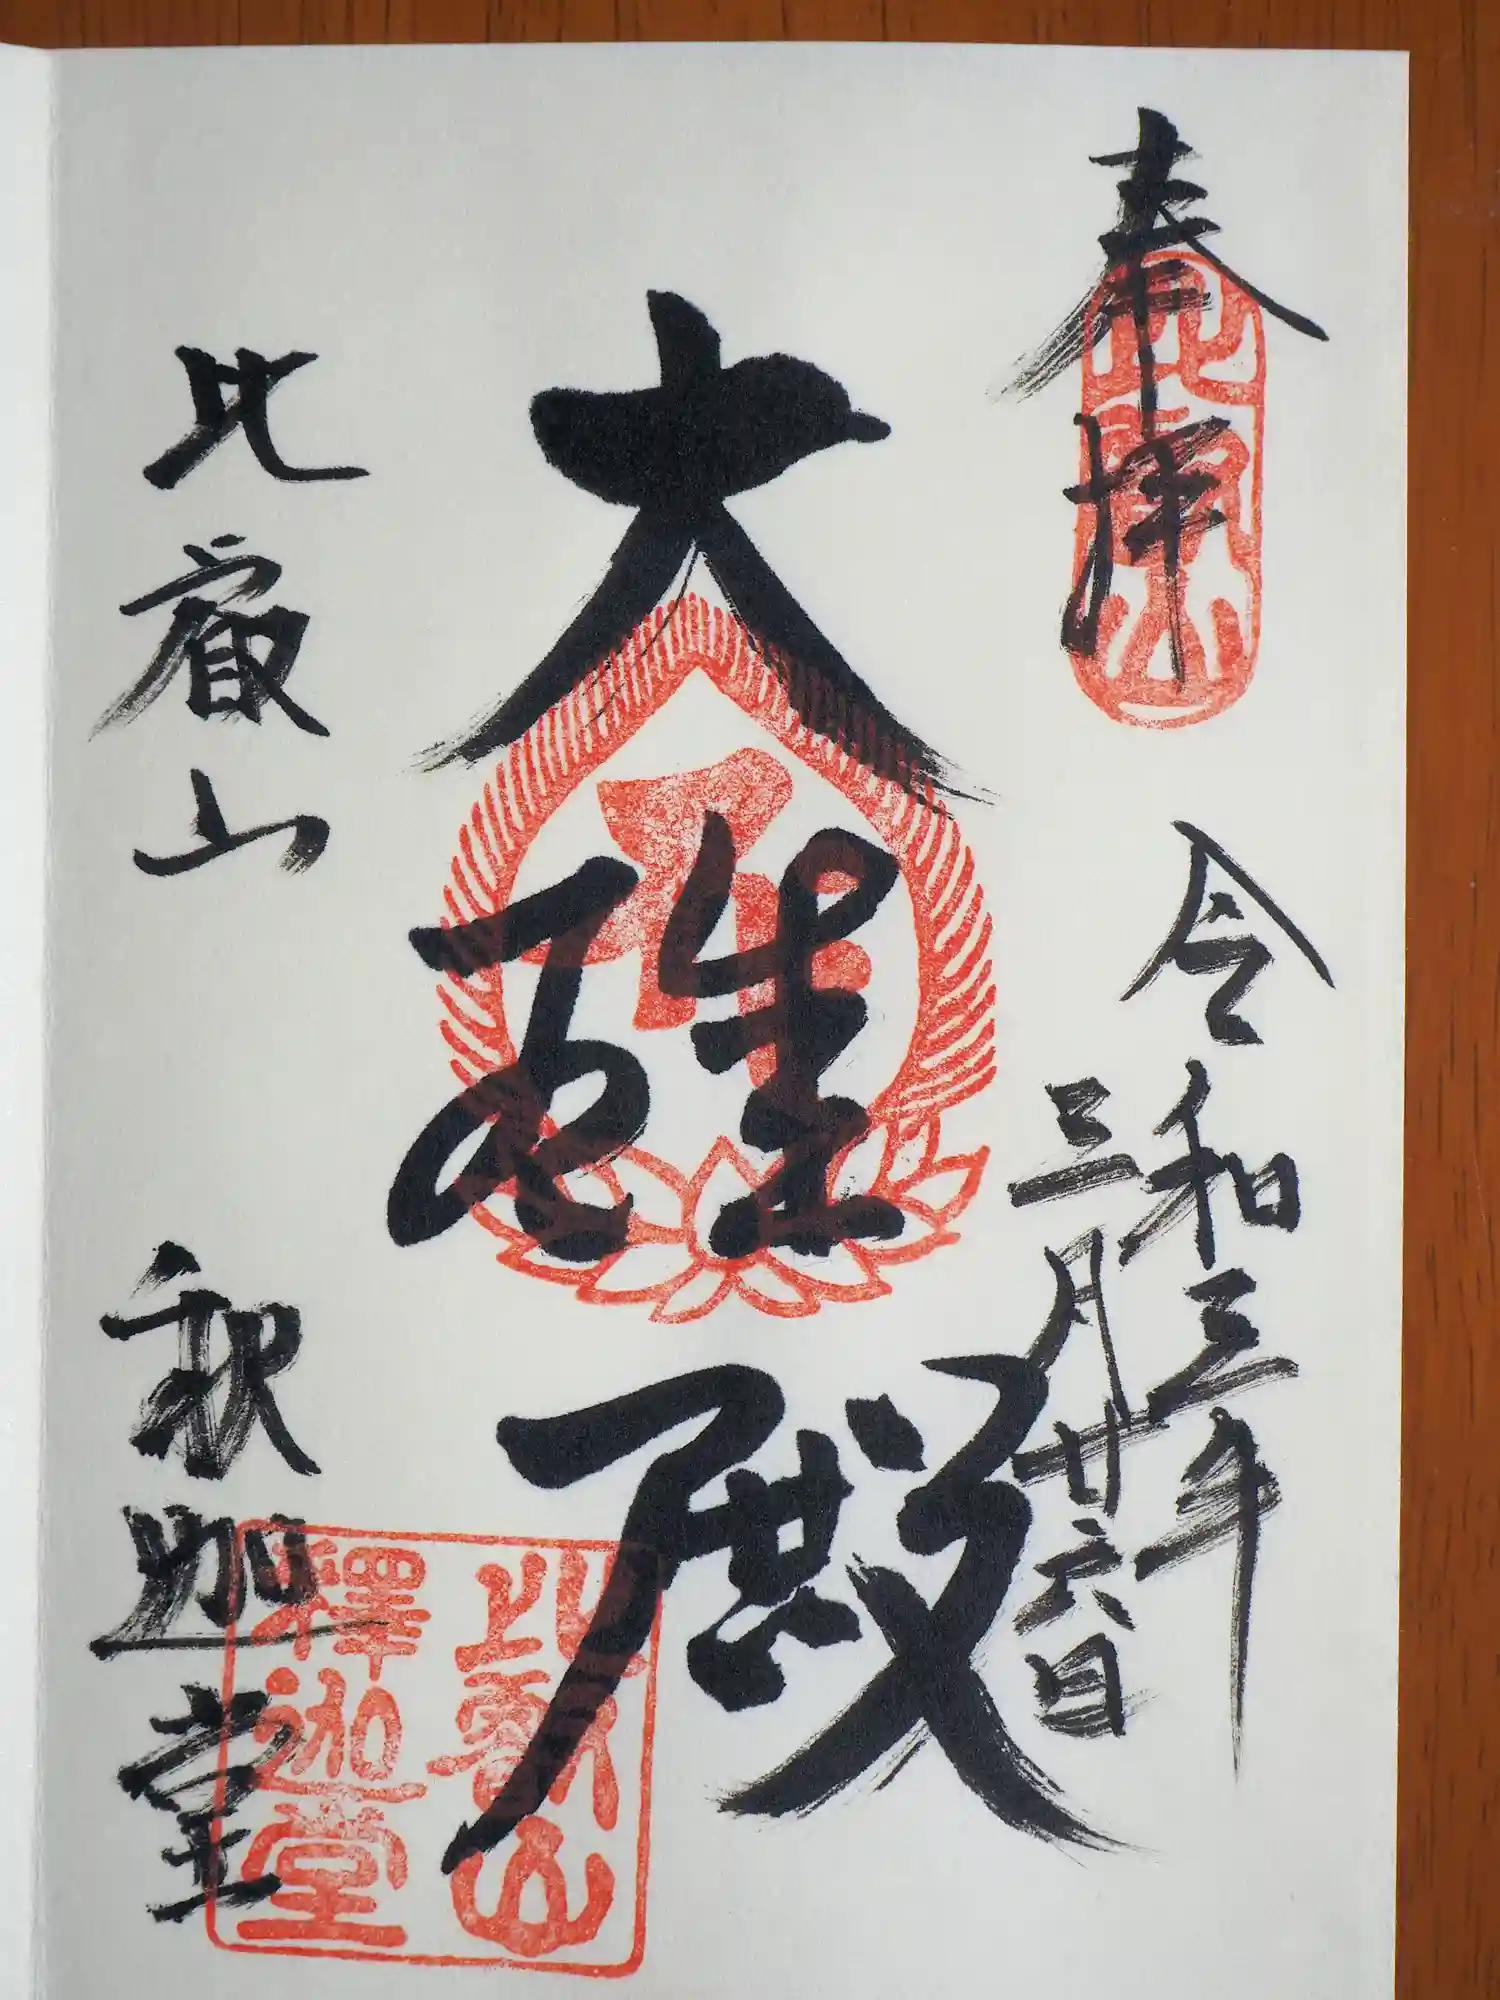 奉拝
比叡山
令和三年
三月廿六日
大雄殿
比叡山 釈迦堂
比叡山
釋迦堂